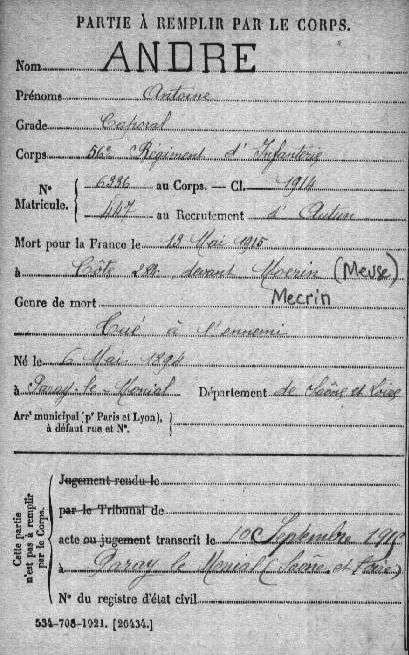 PARTIE À REMPLIR PAR LE CORPS.
Nom ANDRE
Prénoms Antoine
Grade Caporal
Corps 56e Régiment d'Infanterie
N° Matricule. { 6336 au Corps. — Cl. 1914
447 au Recrutement d'Autun
Mort pour la France le 13 Mai 1915
à Côte 289 devant Mecrin (Meuse)
Mecrin
Genre de mort
Tué à l'ennemi
Né le 6 Mai 1894
à Paray-le-Monial Département de Saône et Loire
Arrt municipal (pr Paris et Lyon), à défaut rue et N°.
Cette partie n'est pas à remplir par le Corps.
Jugement rendu le
par le Tribunal de
acte ou jugement transcrit le 10 Septembre
à Paray le Monial (Saône et Loire)
N° du registre d'état civil
534-708-1921. [26434.]